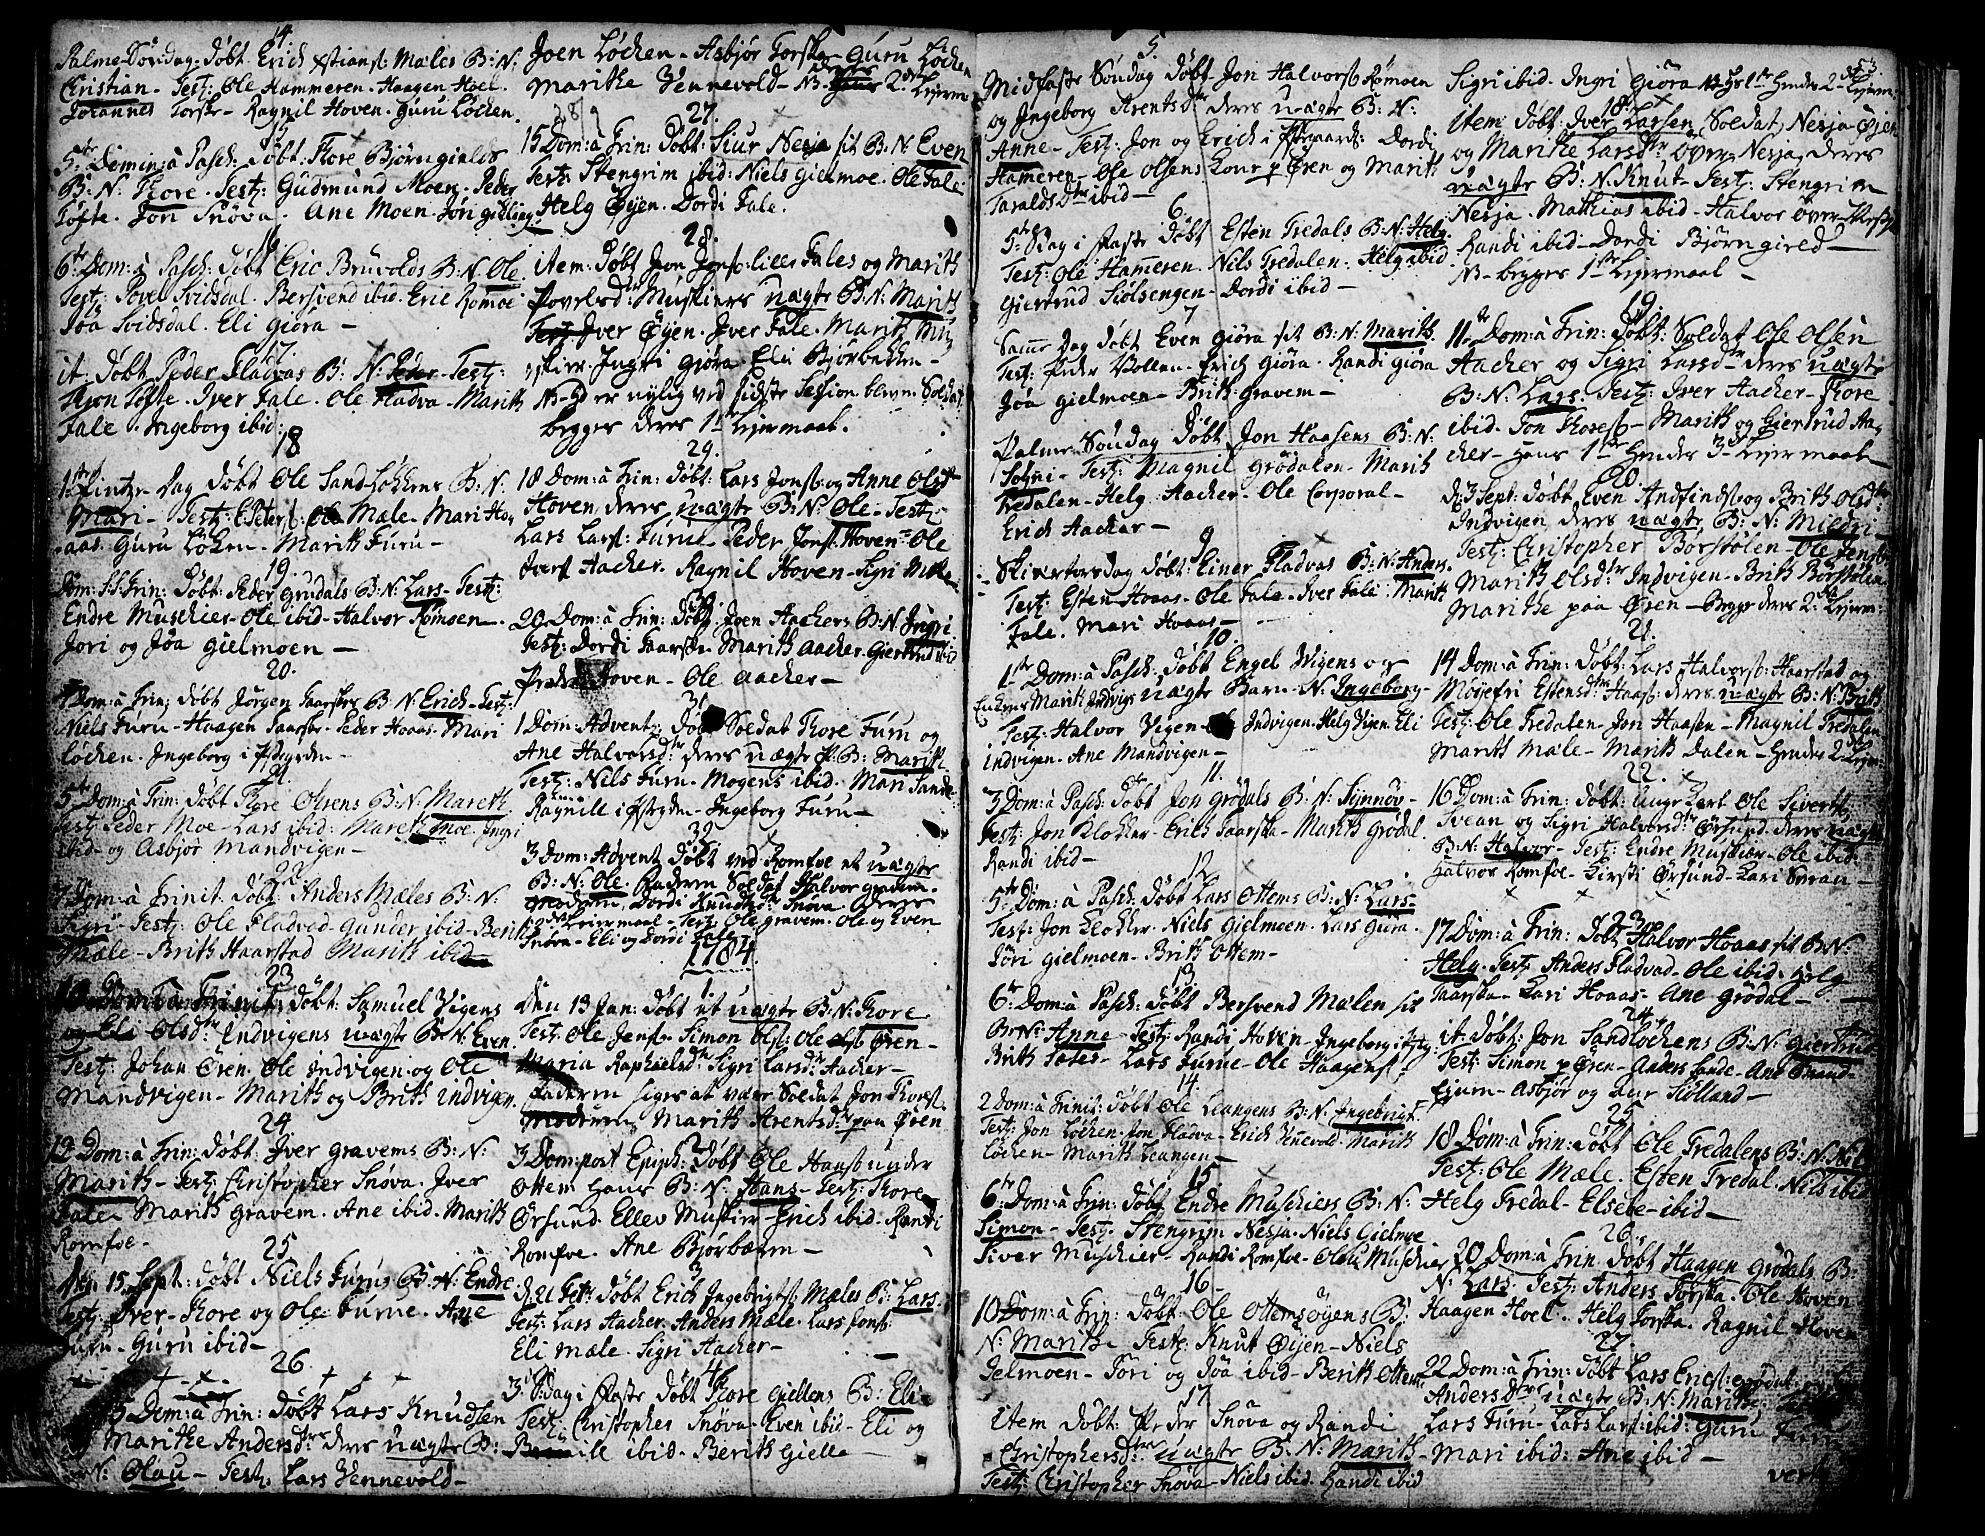 14.
Palme-Söndag. döbt Erich Xstians: Mæles B: N.
Cristian - Test: Ole Hammeren. Haagen Hoel.
Johannes Torske - Ragnil Hoven. Guru Löcken.
15
5te Domin: à Pasch: döbt: Thore Björngields
B: N: Thore. Test: Gudmund Moen. Peder
Tofte. Jon Snöva. Ane Moen.
16
6te Dom: à Pasch: döbt Eric Brüvolds B: N: Ole
Test: Povel Svidsdal. Bersvend ibid. Eric Romoe
Joa Svidsdal. Eli Giöra -
17.
it. döbt Peder Fladvas B: N: Peder - Test:
Tofte. Iver Fale. Ole Fladva - Marith
Fale. Ingeborg ibid:
18
1ste Pintze-dag döbt Ole Sandlökkens B: N.
Mari - Test: Mæle - Mari Ho,
aas. Guru Löken - Marith Furu -
19.
Dom: SS Trin: döbt: Peder Grudals B: N: Lars - Test:
Endre Muschier - Ole ibid - Halvor Romoen -
Jori og Joa Gielmoen -
20.
Dom: à Trin: döbt Jörgen Taarskes B: N: Erich - Test:
Niels Furu - Haagen Taarske - Peder Hoaas - Mari
Löcken. Ingeborg i
21
5te Dom: à Trin: döbt Thore Örens B: N: Mareth
Test: Peder Moe - Lars ibid: Mareth Moe. Ingri
ibid - og Asbjör Mandvigen -
22
7 Dom: à Trinit. döbt: Anders Mæles B: N:
Sigri - Test: Ole Fladvad - Gunder ibid - Berit
Mæle - Brith Haarstad Marith ibid
23
Dom: à Trinit: döbt: Samuel Vigens
og Eli Olsdtr Indvigens uægte B: N: Even.
Test: Johan Ören. Ole Indvigen og Ole
Mandvigen - Marith og Brith indvigen.
24
12 Dom: à Trin: döbt: Iver Gravems B: N:
Marith - Test: Christopher Snöva. Iver
Fale. Marith Gravem. Ane ibid. Marith
Romfoe -
25
15 Sept: döbt Niels Furus B: N: Endre
Test: Iver - Thore og Ole Furue. Ane
Furu - Guru ibid -
26
Dom: à Trin: döbt Lars Knudsen
Marithe Andersdtrs deres uægte B:
N: Olau - Test: Lars Vennevold -
Joen Löcken - Asbjör Torske - Guru Löcken
Marithe Vennevold - NB 2den Leierm
27.
15 Dom: à Trin: döbt: Siur Nesja sit B: N: Even
Test: Stengrim ibid: Niels Gielmoe. Ole Fale
Helg Öyen. Dordi Fale.
28.
item: Döbt Jon Jonss: lille Fales og Marith
Povelsdtr: Muskiers uægte B: N: Marith
Test Iver Öyen. Iver Fale. Marith Mus
skier. Ingri Giöra. Eli Björbekken -
NB - er nylig ved sidste Session bleven Soldat
begges deres 1ste Leiermaal.
29.
18 Dom: à Trin: döbt: Lars Jonss: og Anne Olsdtr
Hoven, deres uægte B: N: Ole - Test:
Lars Larss: Furue - Peder Jonss: Hoven - Ole
Iverss Aacker. Ragnil Hoven - Sigri Mæle
30.
20 Dom: à Trin: döbt Joen Aackers B: N. Ingri
Test: Dordi Taarske. Marith Aacker. Giertrud ibid
Peder Hoven - Ole Aacker -
31
1 Dom: Advent: döbt Soldat Thore Furu og
Ane Halvorsdtr deres uægte P. B: Marith
Test: Nils Furu - Mogens ibid - Mari Sande
Ragnille i - Ingeborg Furu -
32
3 Dom: Advent, döbt ved Romfoe et uægte
B: N: Ole. Faderen Soldat Halvor Gravem.
Moderen Dordi Knudsdtr Snova deres
Leiermaal - Test: Ole Gravem. Ole og Even
Snöva - Eli og Dordi Fale -
1784.
1
Den 13 Jan: döbt et uægte B: N: Thore
Test: Ole Jenss. Simon Olss: Ole Ören -
Maria Raphaelsdtr Sigri Larsdtr: Aacker -
Faderen siges at være Soldat Jon Thorss.
Moderen, Marith Arentsdtr paa Ören
2
3 Dom: post Epiph: döbt Ole Hanss under
Ottem hans B: N: Hans - Test: Thore
Örsund. Ellev Muskier - Erich ibid - Randi
Romfoe. Ane Björbærn -
3
D. 21 Febr: döbt Erich Ingebrigtss: Mæles B: Lars.
Test: Lars Aacker. Anders Mæle. Lars Jonss:
Eli Mæle. Sigri Aacker -
4
3 Sdag i Faste döbt Thore Giellens B: Eli -
Test: Christopher Snöva - Even ibid - Eli og
ibid - Berith Gielle
5
Midfaste Söndag döbt Jon Halvorss Romoen
og Ingeborg Arentsdtr deres uægte B: N.
Anne - Test: Jon og Erich i Dordi
Hameren - Ole Olsens Kone p Ören og Marith
Taraldsdtr ibid -
6
5te Sdag i Faste döbt Esten Tredals B: N: Helg.
Test: Ole Hammeren. Nils Tredalen. Helg ibid
Giertrud Siölsengen - Dordi ibid -
7
Samme dag döbt Even Giöra sit B: N: Marith.
Test: Peder Vollen. Erich Giöra. Randi Giöra
Joa Gielmoen - Brith Gravem -
8
Palme Söndag döbt Jon Haasens B: N:
Sogni - Test: Magnil Grödalen - Marith
Tredalen - Helg Aacker - Ole Corporal -
Erich Aacker -
9
Skiertorsdag döbt Einer Fladvas B: N: Anders.
Test: Esten Hoaas - Ole Fale - Iver Fale: Marith
Fale. Mari Hoaas -
10.
1ste Dom: à Pasch: döbt Engel Vigens og
Marith Indvigs uægte Barn - N: Ingeborg -
Test: Halvor Vigen - Indvigen - Helg Vigen. Eli
indvigen - Ane Mandvigen -
11.
3 Dom: à Pasch: döbt Jon Grödals B: N: Synnöv -
Test: Jon Klokker - Erich Taarske - Marith Grödal
Randi ibid -
12
5te Dom: à Pasch: döbt Lars Ottems B: N: Lars -
Test: Jon Klokker. Niels Gielmoen. Lars Giöra.
Jöri Gielmoen - Brith Ottem -
13
6te Dom: à Pasch: döbt Bersvend Mælen sit
B: N: Anne - Test: Randi Hoven - Ingeborg i
Brith - Lars Furue - Ole Haagenss:
14
2 Dom: à Trinit: döbt Ole Leangens B: N: Ingebrigt.
Test: Jon Löcken. Jon Fladva - Erich Vennevold - Marith
Löcken - Marith Leangen -
15
6te Dom: à Trin: döbt Endre Muschiers B: N:
Simon - Test: Stengrim Nesja - Niels Gielmoe.
Siver Muschier - Randi Romfoe - Muschier
16
10 Dom: à Trin: döbt: Ole Ottemsöyens B:
N: Marith Test: Knut Öyen - Niels
Gelmoen - Jori og Joa ibid - Berith Ottem
17
item döbt: Peder Snöva og Randi
Christophersdtrs uægte B: N: Marith -
Test: Christopher Snöva - Niels ibid. Randi ibid
53.
Sigri ibid. Ingri Giöra NB. Hs 1ste Hendes 2. Leierm:
18.
item döbt: Iver Larsen, Soldat Nesja Öjen
og Marithe Larsdtr Över Nesja, deres
uægte B: N: Knut - Test: Stengrim
Nesja. Mathias ibid - Halvor Över-Nesja
Randi ibid - Dordi Björngired -
NB - begges 1ste Leiermaal -
19
11te Dom: à Trin: döbt: Soldat Ole Olsen
Aacker og Sigri Larsd - deres uægte
B: N: Lars. Test: Iver Aacker - Thore
ibid. Jon Thoress - Marith og Giertrud Aa,
cker - Hans 1ste Hendes 3die Leiermaal -
20
d. 3 Sept: döbt Even Andfindss og Brith Olsdtr
Indvigen deres uægte B: N: Mildri -
Test: Christopher Börstölen - Ole Jenss
Marith Olsdtr Indvigen - Brith Börstölen
Marithe paa Ören - Begge deres 2det Leierm:
21.
14 Dom: à Trin: döbt: Lars Halvorss: Haarstad og
Möyefri Estensdtr Haass: deres uægte B: N: Brith
Test: Ole Tredalen - Jon Haasen - Magnil Tredalen
Marith Mæle - Marith Dalen - Hendes 2det Leierm
22.
16 Dom: à Trin: döbt: Unge Karl Ole Sivertss
Svean og Sigri Halvorsdtr Örsund deres uægte
B: N: Halvor - Test: Endre Muskier - Ole ibid:
Halvor Romfoe - Kirsti Örsund - Kari Svean -
23
17 Dom: à Trin: döbt Halvor Hoaas sit B: N:
Helg. Test: Anders Fladvad - Ole ibid. Helg
Taarska - Kari Hoaas - Ane Grödal -
24
it. döbt: Jon Sandlöckens B: N: Giertrud
Test: Simon p Ören - Anders Sande - Ane
- Asbjör og Siölland -
25
18 Dom: à Trin: döbt Ole Tredalens B: N: Nils
Test: Ole Mæle. Esten Tredal. Nils ibid
Helg Tredal - Elsebe - ibid -
26.
20 Dom: à Trin döbt Haagen Grödals B:
N: Lars - Test: Anders Torska. Ole Hoven
Haagen Hoel. Helg Torska. Ragnil Hoven
27.
22 Dom: à Trin: döbt Lars Ericss: Grödal og
Andersdtrs uægte B: N: Marith
Lars Furu - Lars Larss: ibid: Guru Furu
Mari ibid: Ane ibid -